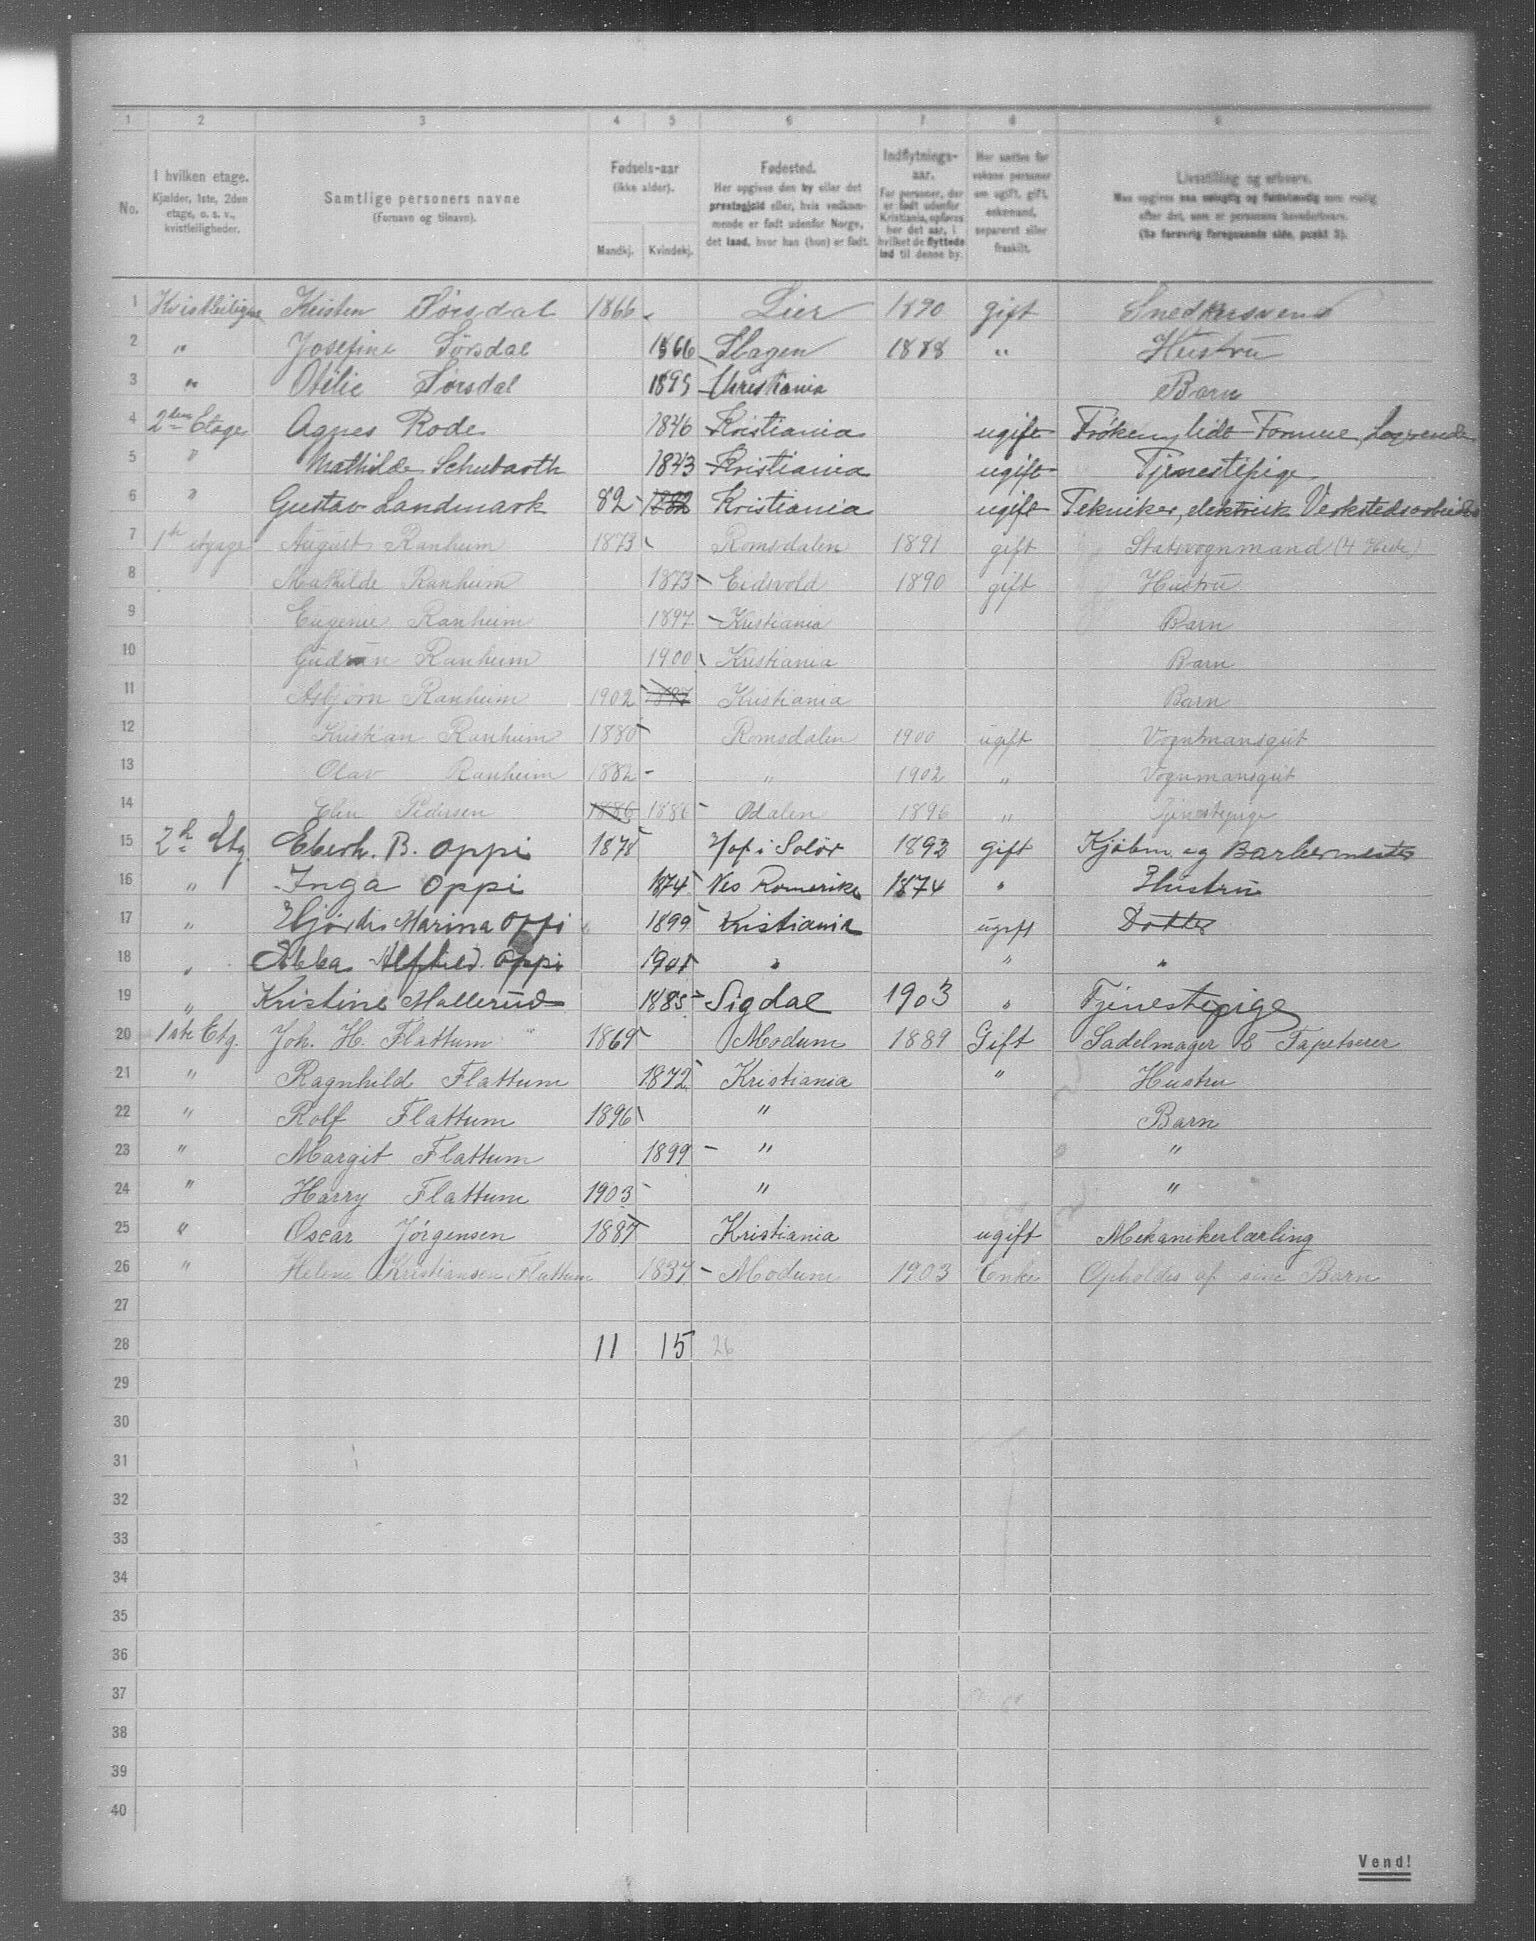 1 2 3 4 5 6 7 8 9
No. I hvilken etage. Kjælder, 1ste, 2den etage, o. s. v., kvistleiligheder. Samtlige personers navne (Fornavn og tilnavn). Fødsels-aar (ikke alder). Mandkj. Kvindekj. Fødested. Her opgives den by eller det prestegjeld eller, hvis vedkommende er født udenfor Norge, det land, hvor han (hun) er født. Indflytnings-aar. For personer, der er født udenfor Kristiania, opføres her det aar, i hvilket de flyttede ind til denne by. Her sættes for voksne personer om ugift, gift, enkemand, separeret eller fraskilt. Livsstilling og erhverv. Maa opgives saa nøiagtig og fuldstændig som mulig efter det, som er personens hovederhverv. (Se forøvrig foregaaende side, punkt 3).
1 Kvistleilighe Kristen Sørsdal 1866 Lier 1890 gift Snedkersvend
2 " Josefine Sørsdal 1866 Slagen 1888 " Hustru
3 " Otilie Sørsdal 1895 Christiania Barn
4 2den Etage Agnes Rode 1846 Kristiania ugift Frøken, lidt Formue
5 " Mathilde Schubarth 1843 Kristiania ugift Tjenestepige
6 " Gustav Landmark 82 1882 Kristiania ugift Tekniker, elektrisk Verkstedsarbeider
7 1ste etgage August Ranheim 1873 Romsdalen 1891 gift Statsvognmand (4 Heste)
8 Mathilde Ranheim 1873 Eidsvold 1890 gift Hustru
9 Eugenie Ranheim 1897 Kristiania Barn
10 Gudrun Ranheim 1900 Kristiania Barn
11 Asbjørn Ranheim 1902 Kristiania Barn
12 Kristian Ranheim 1880 Romsdalen 1900 ugift Vognmansgut
13 Olav Ranheim 1882 " 1902 " Vognmansgut
14 Elin Pedersen 1886 1886 Odalen 1896 " Tjenestepige
15 2n Etg. Eberh. B. Oppi 1870 Hof i Solør 1893 gift Kjøbm. og Barbermester
16 " Inga Oppi 1874 Nes Romerike 1874 " Hustru
17 " Hjørdis Marina Oppi 1899 Kristiania ugift Datter
18 " Ebba Alfhild Oppi 1901 " " "
19 " Kristine Møllerud 1885 Sigdal 1903 " Tjenestepige
20 1ste Etg. Joh. H. Flattum 1869 Modum 1889 Gift Sadelmager & Tapetserer
21 " Ragnhild Flattum 1872 Kristiania " Hustru
22 " Rolf Flattum 1896 " Barn
23 " Margit Flattum 1899 " "
24 " Harry Flattum 1903 " "
25 " Oscar Jørgensen 1887 Kristiania ugift Mekanikerlærling
26 " Helene Kristiansen Flattum 1837 Modum 1903 Enke Opholdes af sine Barn
27
28 11 15 26
29
30
31
32
33
34
35
36
37
38
39
40
Vend!